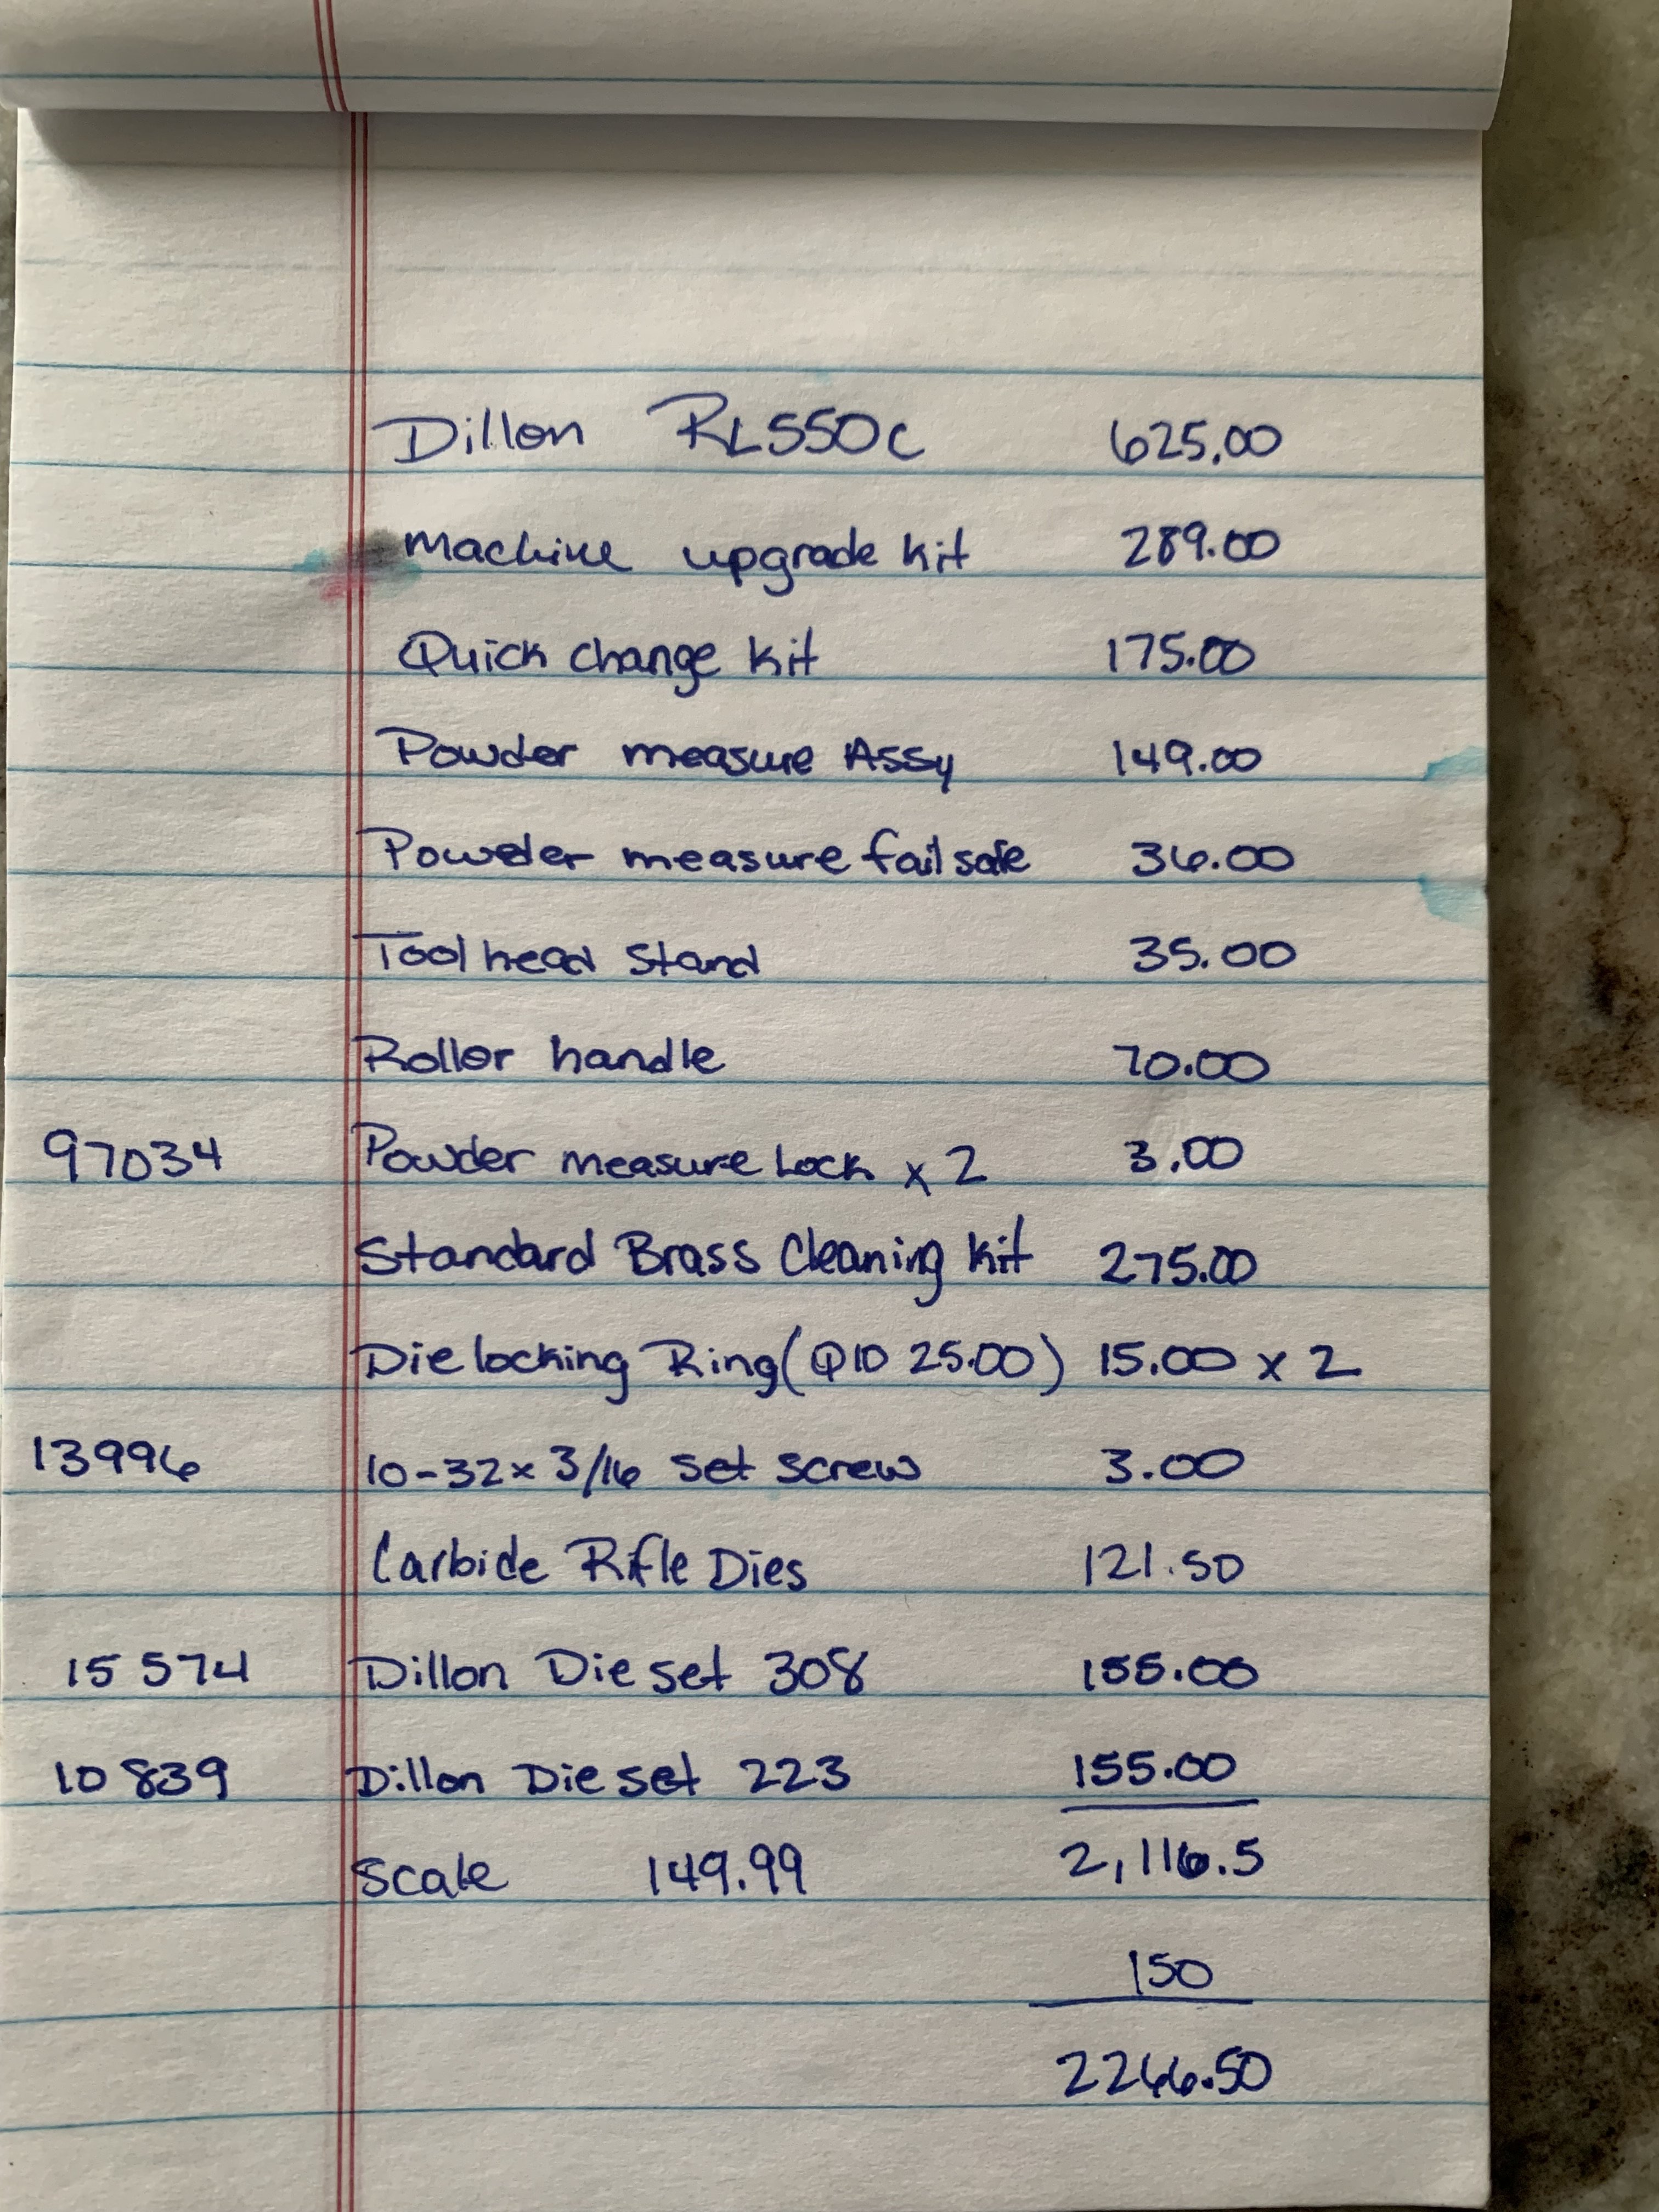 Dillon RL550C 625.00
Machine upgrade kit 289.00
Quick change kit 175.00
Powder measure Assy 149.00
Powder measure failsafe 36.00
Tool head Stand 35.00
Roller handle 70.00
97034 Powder measure Lock x 2 3.00
Standard Brass Cleaning Kit 275.00
Die locking Ring (Q10 25.00) 15.00 x 2
13996 10-32x 3/16 set screw 3.00
Carbide Rifle Dies 121.50
15574 Dillon Die set 308 155.00
10839 Dillon Die set 223 155.00
Scale 149.99 2,116.5
150
2266.50